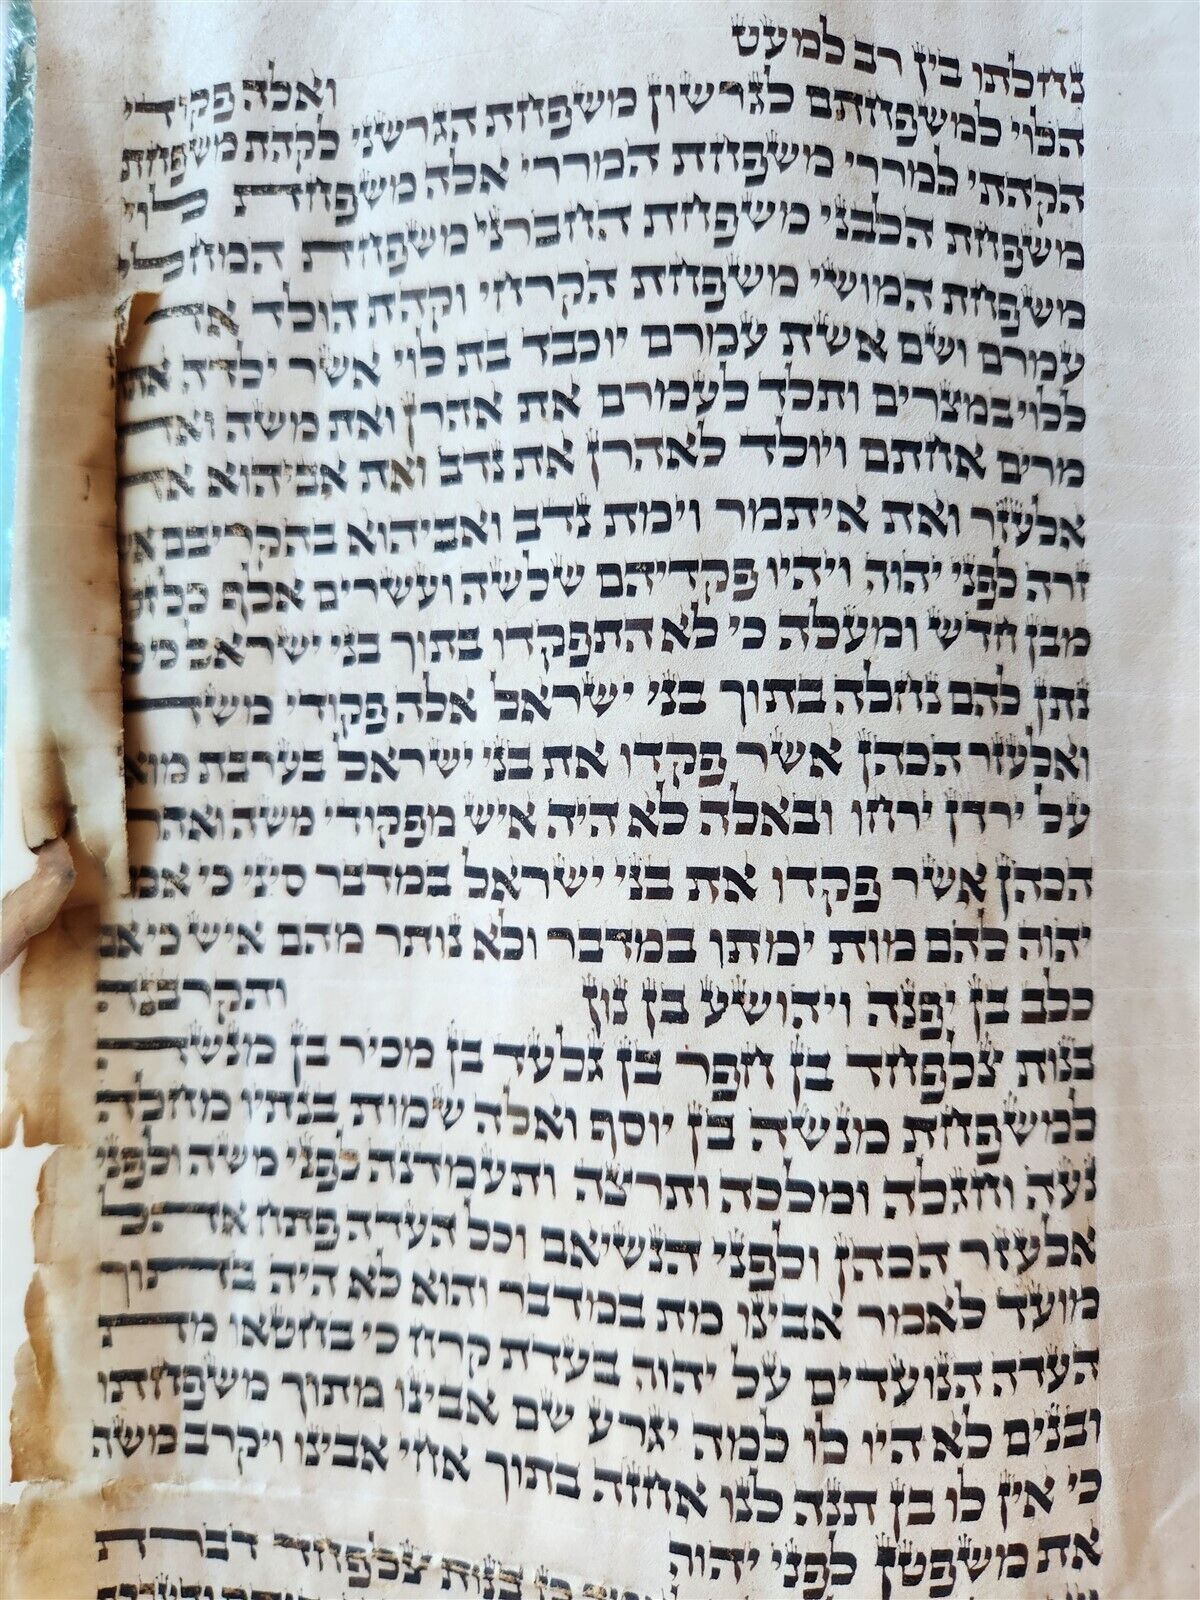 נחלתו בין רב למעט
ואלה פקודי
הלוי למשפחתם לגרשון משפחת הגרשני לקהת משפחת
הקהתי למררי משפחת המררי אלה משפחת לוי
משפחת הלבני משפחת החברני משפחת המחלי
משפחת המושי משפחת הקרחי וקהת הולד את
עמרם ושם אשת עמרם יוכבד בת לוי אשר ילדה את
ללוי במצרים ותלד לעמרם את אהרן ואת משה ואת
מרים אחתם ויולד לאהרן את נדב ואת אביהוא את
אלעזר ואת איתמר וימת נדב ואביהוא בהקריבם
זרה לפני יהוה ויהיו פקדיהם שלשה ועשרים אלף כל
מבן חדש ומעלה כי לא התפקדו בתוך בני ישראל כי
נתן להם נחלה בתוך בני ישראל אלה פקודי משה
ואלעזר הכהן אשר פקדו את בני ישראל בערבת
על ירדן ירחו ובאלה לא היה איש מפקודי משה
הכהן אשר פקדו את בני ישראל במדבר סיני כי
יהוה להם מות ימתו במדבר ולא נותר מהם איש כי אם
כלב בן יפנה ויהושע בן נון ותקרבנה
בנות צלפחד בן חפר בן גלעד בן מכיר בן מנשה
למשפחת מנשה בן יוסף ואלה שמות בנתיו מחלה
נעה וחגלה ומלכה ותרצה ותעמדנה לפני משה ולפני
אלעזר הכהן ולפני הנשיאם וכל העדה פתח אהל
מועד לאמר אבינו מת במדבר והוא לא היה בתוך
העדה הנועדים על יהוה בעדת קרח כי בחטאו מת
ובנים לא היו לו למה יגרע שם אבינו מתוך משפחתו
כי אין לו בן תנה לנו אחזה בתוך אחי אבינו ויקרב משה
את משפטן לפני יהוה
בנות צלפחד דברת